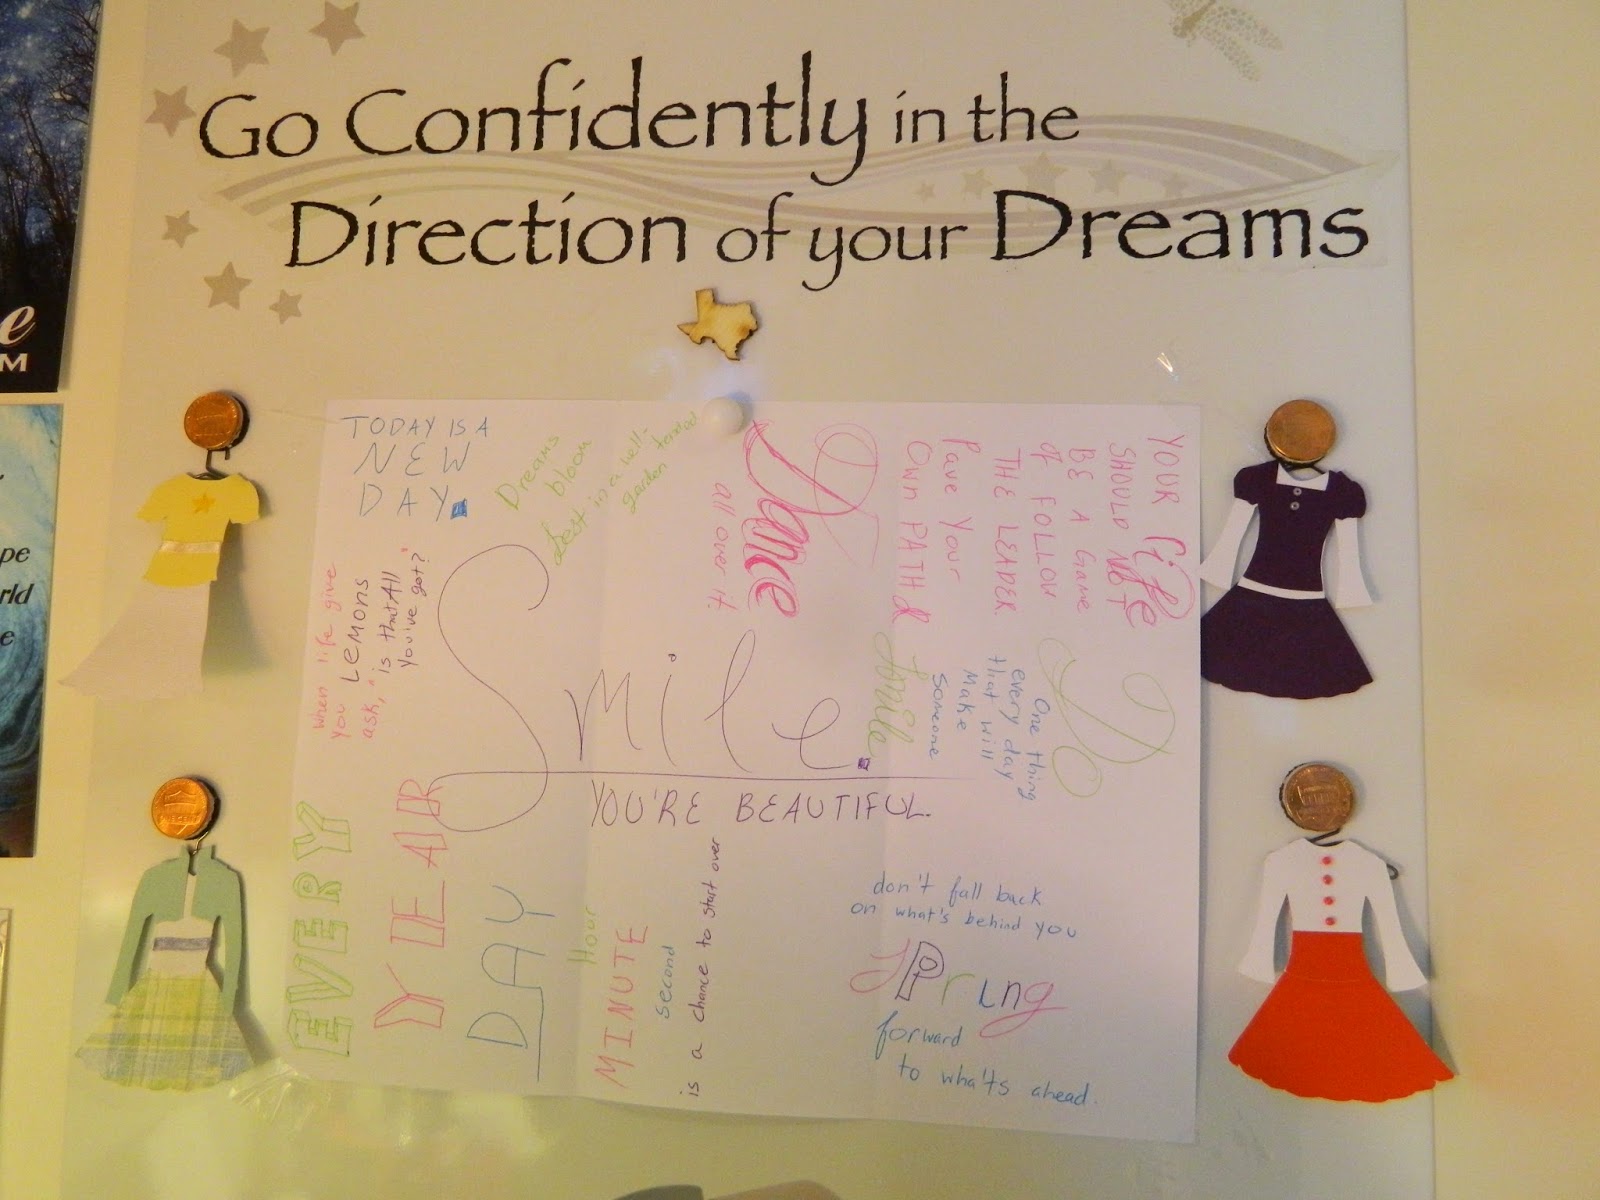 Go Confidently in the
Direction of your Dreams
e
M
pe
rld
e
TODAY IS A
NEW
DAY.
Dreams
bloom
best in a well-tended
garden
Dance
all over it.
YOUR life
SHOULD NOT
BE A Game
OF FOLLOW
THE LEADER
Pave Your
Own PATH &
When life give
you LEMONS
ask, "is that All
you've got?"
Smile.
YOU'RE BEAUTIFUL.
DO
One thing
every day
that will
Make
someone
smile
EVERY
YEAR
DAY
Hour
MINUTE
second
is a chance to start over
don't fall back
on what's behind you
SPring
forward
to wha'ts ahead.